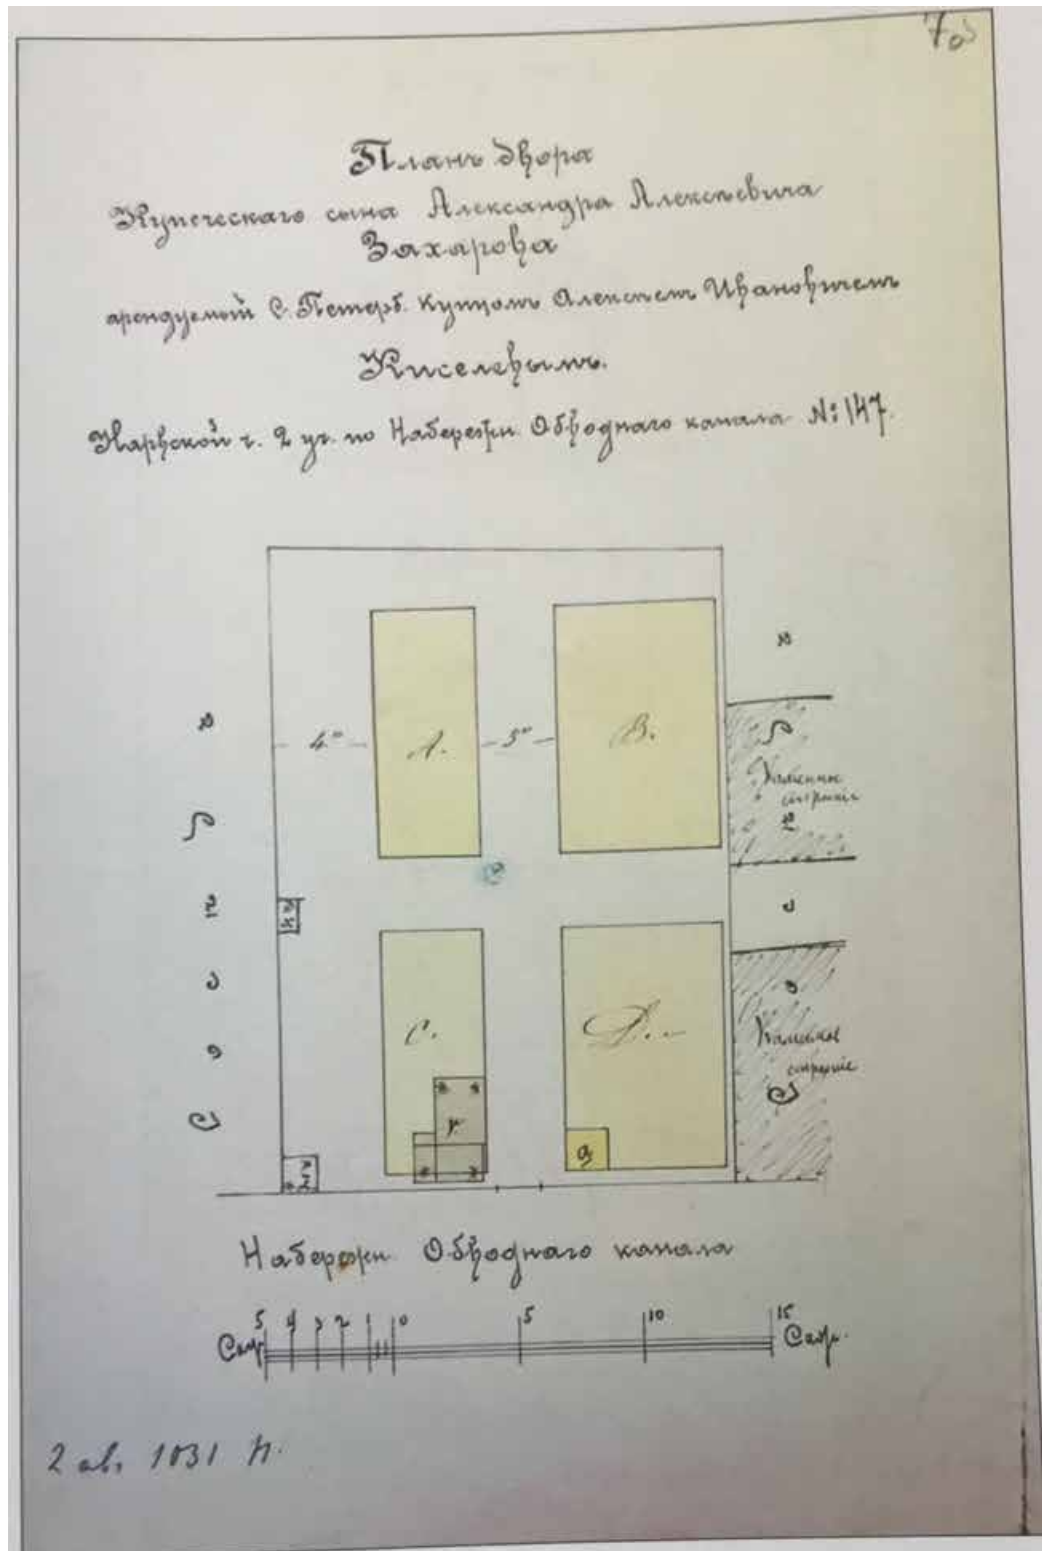 7об
Планъ двора
Купеческаго сына Александра Алексѣевича
Захарова
арендуемый С. Петерб. купцомъ Алексѣемъ Ивановичемъ
Киселевымъ.
Нарвской ч. 2 уч. по Набережн. Обводнаго канала №147.
4°
A.
5°
B.
Каменное
строенiе
C.
D.
Каменное
строенiе
г
а
С о с ѣ д ъ
С о с ѣ д ъ
Набережн. Обводнаго канала
5 4 3 2 1 0 5 10 15
Саж. Саж.
2 ав. 1031